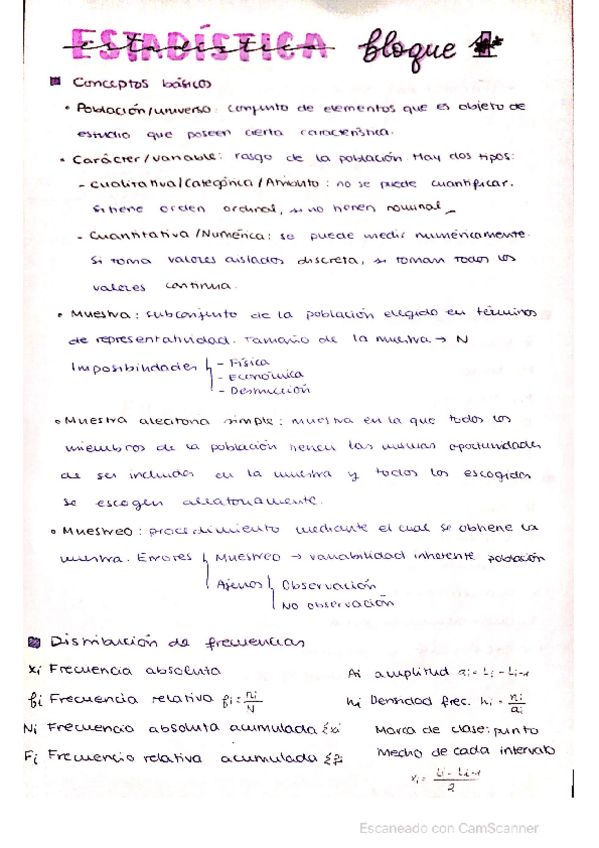 ESTADÍSTICA bloque 1
estadística
Conceptos básicos
• Población/universo: conjunto de elementos que es objeto de
estudio que poseen cierta característica.
• Carácter/variable: rasgo de la población. Hay dos tipos:
- Cualitativa/Categórica/Atributo: no se puede cuantificar.
Si tiene orden ordinal, si no tienen nominal
- Cuantitativa/Numérica: se puede medir numéricamente.
Si toma valores aislados discreta, si toman todos los
valores continua.
• Muestra: subconjunto de la población elegido en términos
de representatividad. Tamaño de la muestra → N
Imposibilidades - Física
- Económica
- Destrucción
• Muestra aleatoria simple: muestra en la que todos los
miembros de la población tienen las mismas oportunidades
de ser incluidos en la muestra y todos los escogidos
se escogen aleatoriamente.
• Muestreo: procedimiento mediante el cual se obtiene la
muestra. Errores Muestreo → variabilidad inherente población
Ajenos Observación
No observación
Distribución de frecuencias
xi Frecuencia absoluta
fi Frecuencia relativa fi = ni/N
Ni Frecuencia absoluta acumulada Σxi
Fi Frecuencia relativa acumulada Σfi
Ai amplitud ai = Li - Li-1
hi Densidad frec. hi = ni/ai
Marca de clase: punto
Medio de cada intervalo
xi = Li - Li-1/2
Escaneado con CamScanner